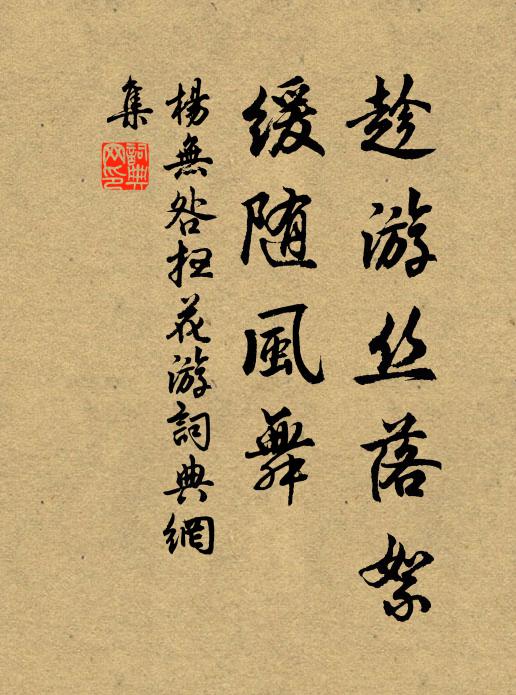 趁游丝落絮
缓随風舞
楊無咎扫花游詞典網
集
詞典
网印